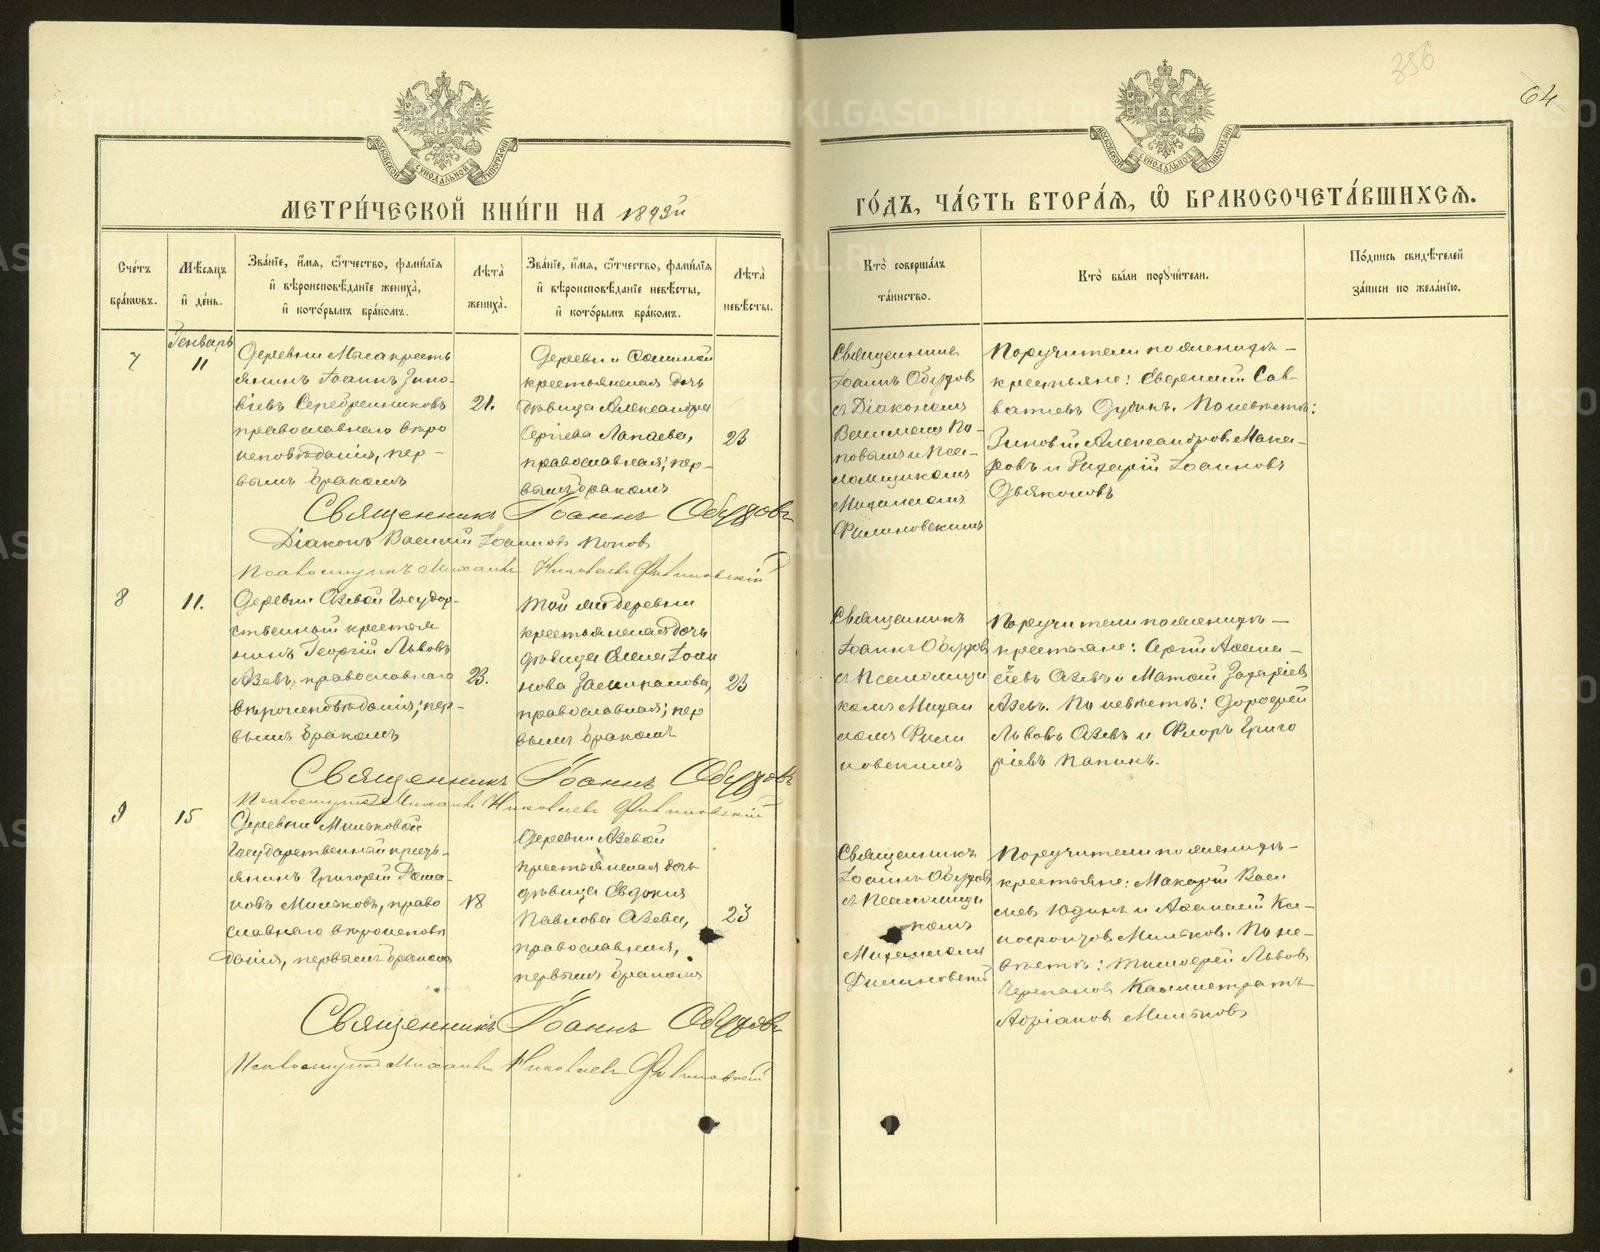 356
64
МОСКОВСКОЙ СѴНОДАЛЬНОЙ ТИПОГРАФІИ
МОСКОВСКОЙ СѴНОДАЛЬНОЙ ТИПОГРАФІИ
МЕТРИ́ЧЕСКОЙ КНИ́ГИ НА 1893й
ГО́ДЪ, ЧА́СТЬ ВТОРА́Я, Ѡ БРАКОСОЧЕТА́ВШИХСѦ.
Сче́тъ бра́кѡвъ.
Мѣ́сѧцъ и де́нь.
Зва́нїе, и́мѧ, ѻ́тчество, фами́лїѧ и вѣроисповѣ́данїе жениха̀, и кото́рымъ бра́комъ.
Лѣта̀ жениха̀.
Зва́нїе, и́мѧ, ѻ́тчество, фами́лїѧ и вѣроисповѣ́данїе невѣ́сты, и кото́рымъ бра́комъ.
Лѣта̀ невѣ́сты.
Кто̀ соверша́лъ та́инство.
Кто̀ бы́ли порꙋчи́тели.
По́дпись свидѣ́телей за́писи по жела́нїю.
Генварь
7
11
Деревни Мыса кресть
янинъ Іоаннъ Зино-
віевъ Серебренниковъ
православнаго вѣро
исповѣданія, пер-
вымъ бракомъ
21.
Деревни
крестьянская дочь
дѣвица Александра
Сергіева Лапаева,
православная, пер-
вымъ бракомъ
23
Священникъ
Іоаннъ Обудов
съ Діакономъ
Василіемъ По-
повымъ и Пса-
ломщикомъ
Михаиломъ
Филиновскимъ
Поручители по женихѣ —
крестьяне: Евгеній Сав-
ватіевъ По невѣстѣ:
Зиновій Александровъ Мака-
ровъ и Іоанновъ
Дьяконовъ
Священникъ Іоаннъ Обудовъ
Діаконъ Василій Іоанновъ Поповъ
Псаломщикъ Михаилъ Николаевъ Филиновскій
8
11.
Деревни Азевой Государ-
ственный крестья
нинъ Георгій Львовъ
Азевъ, православнаго
вѣроисповѣданія, пер-
вымъ бракомъ
23.
Той же деревни
крестьянская дочь
дѣвица Анна Іоан
нова
православная, пер
вымъ бракомъ
23
Священникъ
Іоаннъ Обудов
съ Псаломщи
комъ Михаи
ломъ Фили
новскимъ
Поручители по женихѣ —
крестьяне: Сергій Алек-
сѣевъ Азевъ и Матвѣй Захаріев
Азевъ. По невѣстѣ: Дорофей
Львовъ Азевъ и Флоръ Григо
ріевъ Папинъ.
Священникъ Іоаннъ Обудовъ
Псаломщикъ Михаилъ Николаевъ Филиновскій
9
15
Деревни Мильковой
Государственный кресть-
янинъ Григорій Рома-
новъ Мильковъ, право
славнаго вѣроисповѣ
данія, первымъ бракомъ
18
Деревни Азевой
крестьянская дочь
дѣвица Евдокія
Павлова Азева,
православная,
первымъ бракомъ
23
Священникъ
Іоаннъ Обудов
съ Псаломщи
комъ
Михаиломъ
Филиновскимъ
Поручители по женихѣ —
крестьяне: Макарій Васи
льевъ Юдинъ и Афанасій
Мильков. По не-
вѣстѣ: Тимофей Львовъ
Черепанов Каллистратъ
Адріанов Мильковъ
Священникъ Іоаннъ Обудовъ
Псаломщикъ Михаилъ Николаевъ Филиновскій
METRIKI.GASO-URAL.RU